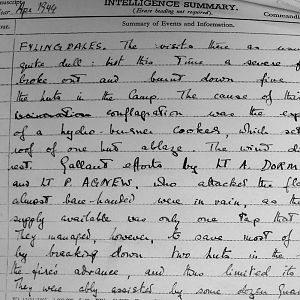 INTELLIGENCE SUMMARY.
(Erase heading not required).
Commandin
Apr 1944
Summary of Events and Information.
FYLINGDALES. The visits there as usual
quite dull : but this time a severe f
broke out and burnt down five
the huts in the Camp. The cause of this
conflagration was the exp
of a hydro-burner cooker, which set
roof of one hut ablaze. The wind di
rest. Gallant efforts by Lt A. DORM
and Lt P. AGNEW, who attacked the fl
almost bare-handed were in vain, as th
supply available was only one tap that
They managed, however, to save most of
by breaking down two huts in the
the fire's advance, and thus limited its
They were ably assisted by some dozen Guar